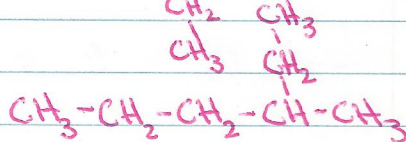 CH₂ CH₃
CH₃ CH₂
CH₃-CH₂-CH₂-CH-CH₃